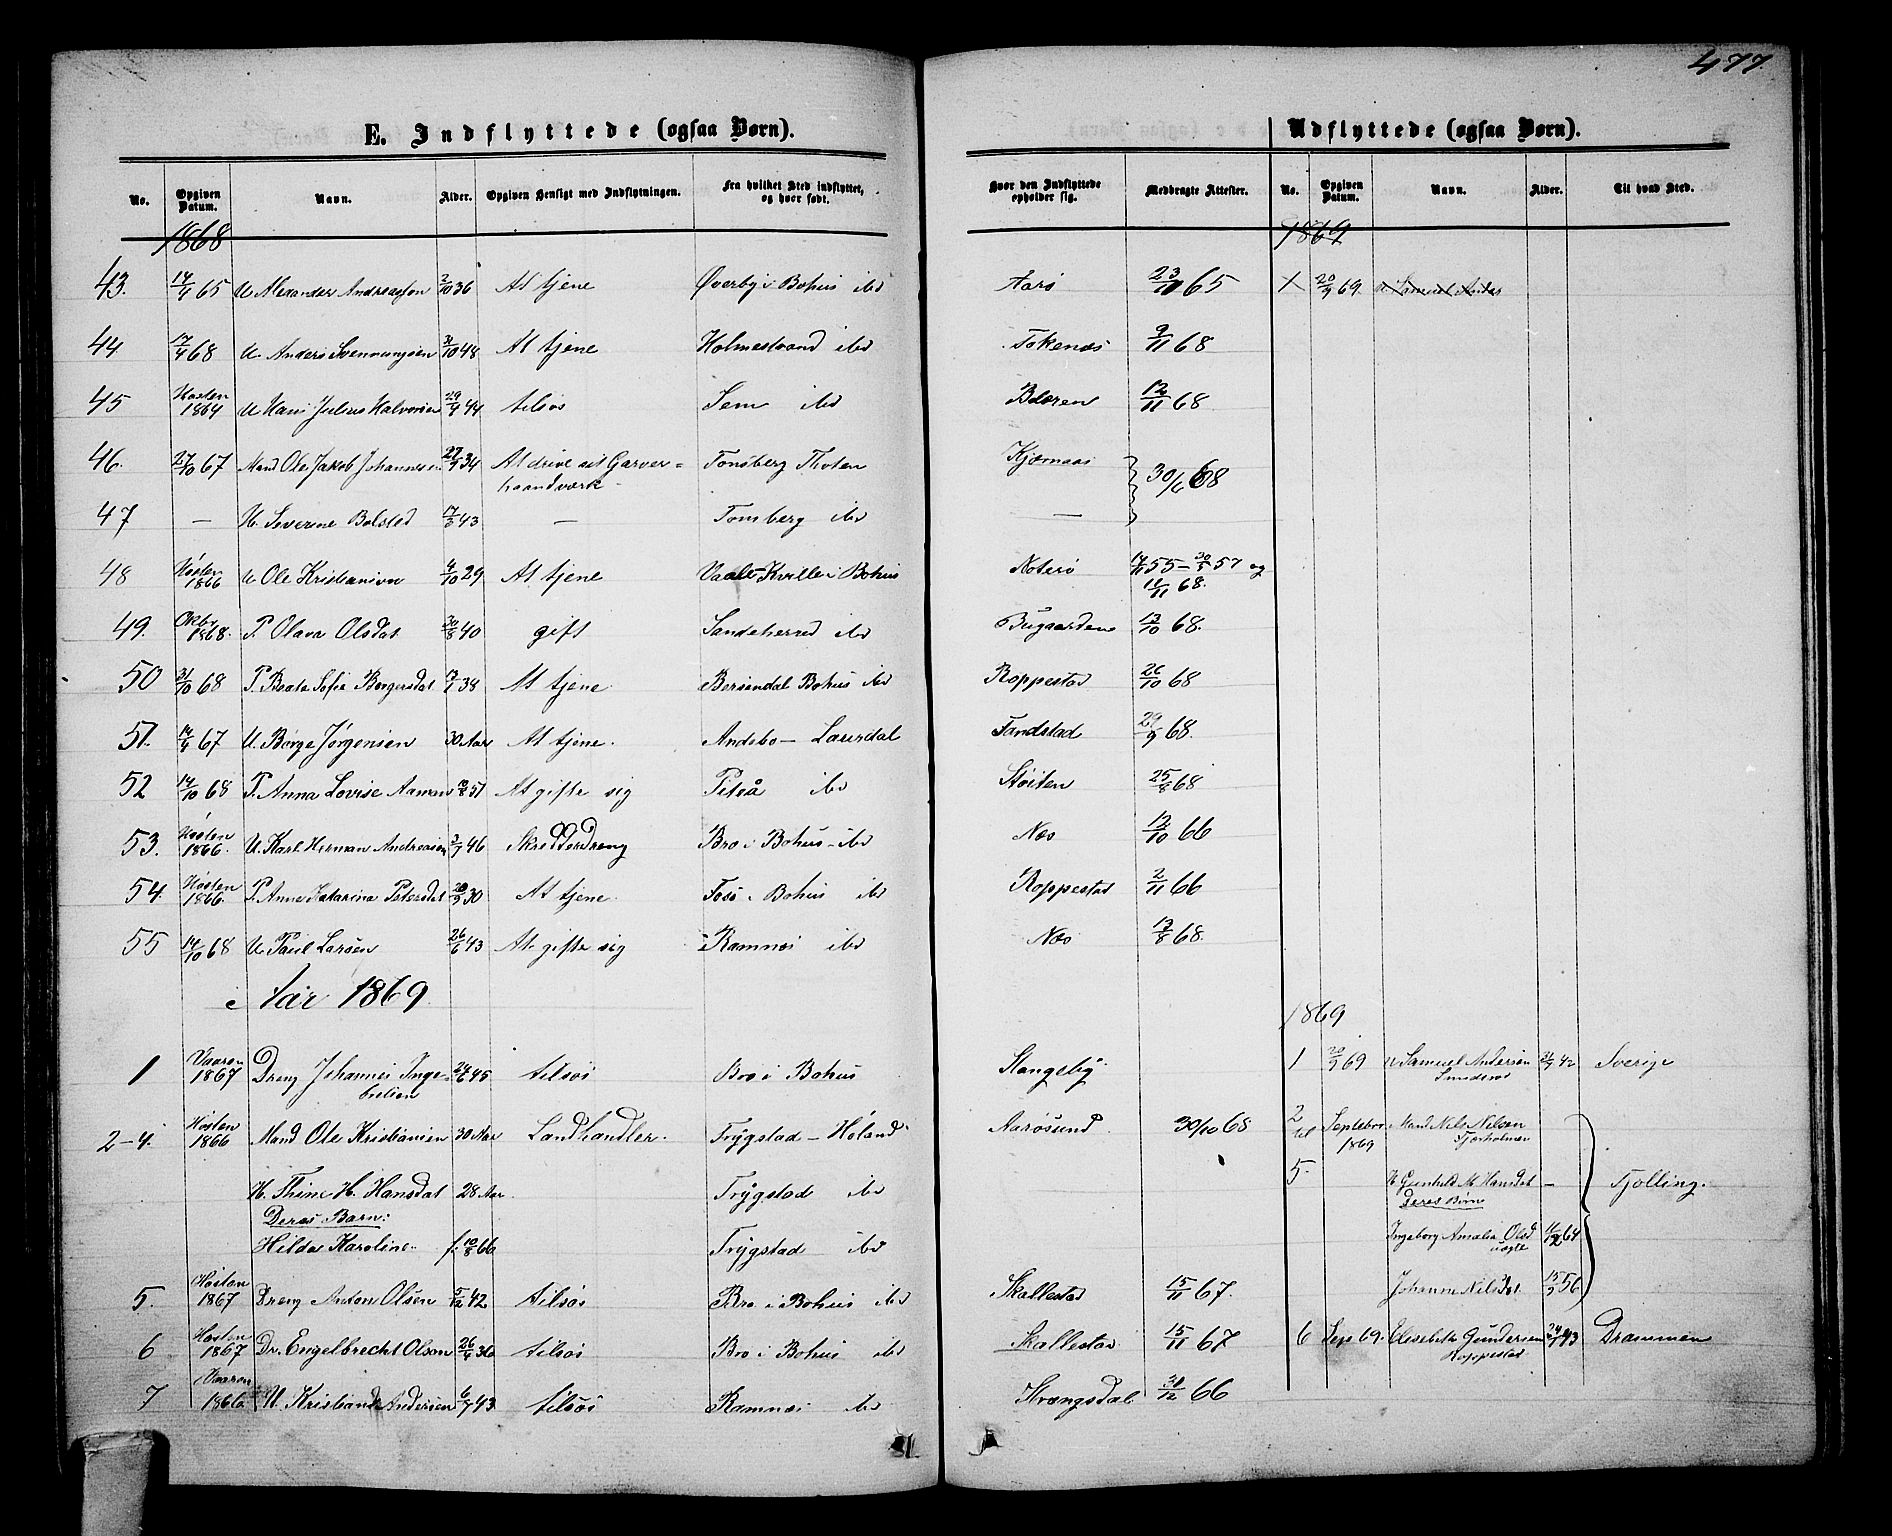 477.
E. Indflyttede (ogsaa Børn). Udflyttede (ogsaa Børn).
No. Opgiven Datum. Navn. Alder. Opgiven Hensigt med Indflytningen. Fra hvilket Sted indflyttet, og hvor født. Hvor den Indflyttede opholder sig. Medbragte Attester. No. Opgiven Datum. Navn. Alder. Til hvad Sted.
1868 1869
43. 14/4 65 U. Alexander Andreasson 2/10 36 At tjene Øverby i Bohus ibd Aarø 23/10 65 20/9 69. U. Samuel Anders
44 17/4 68 U. Anders Svennungsen 31/10 48 At tjene Holmestrand ibd Fokenæs 9/11 68
45 Høsten 1864 U Hans Julius Halvorsen 29/4 44 tilsøs Sem ibd Bdæren 12/11 68
46. 27/10 67 Mand Ole Jakob Johannesen 27/9 34 At drive sit Garver=
haandværk Tonsberg Thoten Kjærnaas 30/6 68
47 — H. Severine Bolsted 17/6 43 — Tonsberg ibd —
48 Høsten 1866 U Ole Kristianson 4/10 29 At tjene Vaale Kville i Bohus Noterø 14/11 55 – 20/5 57 og
11/11 68.
49. Oktbr 1868. P. Olava Olsdat 30/8 40 gift Sandeherred ibd Bugaarden 12/10 68.
50 31/10 68 P. Beate Sofie Borgersdat 17/1 38 At tjene Bersendal Bohus ibd Roppestad 26/10 68
51. 14/4 67 U. Børge Jørgensen 30 Aar At tjene. Andebo – Laurdal Fandstad 29/9 68.
52 14/10 68 P. Anna Lovise Aaman 10/8 51 At gifte sig Piteå ibd Støiten 25/8 68
53. Høsten 1866. U. Karl Herman Andreasen 3/7 46 Skrædderdreng Bro i Bohus – ibd Næs 12/10 66
54. Høsten 1866. P. Anne Katarina Petersdat 20/9 30 At tjene. Foss i Bohus ibd Roppestad 2/11 66
55 14/10 68 U. Paul Larsen 26/6 43 At gifte sig Ramnæs ibd Næs 12/8 68.
Aar 1869 1869
1 Vaaren 1867 Dreng Johannes Inge=
bretsen 24/6 45 tilsøs Bro i Bohus Stangeby. 1 20/9 69 U Samuel Andersen 21/7 42 Sverige
2–4. Høsten 1866 Mand Ole Kristiansen 30 Aar Landhandler. Trygstad – Høland Aarøsund 30/10 68 2 til 5. Septebr 1869 Mand Nils Nilsen
Fjærholmen
H. Thine H. Hansdat 28 Aar Trygstad ibd H Gunhild M Hansdat — Tjolling.
Deres Barn: Deres Børn
Hilda Karoline f. 10/8 66 Trygstad ibd Ingeborg Amalia Olsd 64
uægte
5. Høsten 1867 Dreng Anton Olsen 5/12 42 tilsøs Bro i Bohus ibd Skallestad 15/11 67. Johanne Nilsdat. 56
6 Høsten 1867 Dr. Engelbrecht Olsen 26/4 36 tilsøs Bro i Bohus ibd Skallestad 15/11 67 6 Sep 69. Elisabeth Gundersen 43 Drammen
Roppestad
7 Vaaren 1866 U Kristian Andersen 6/7 43 tilsøs Ramnæs ibd Strængsdal 31/12 66